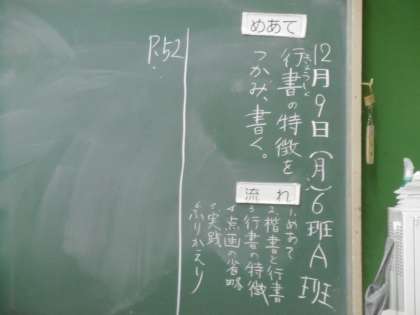 12月9日(月)6班A班
めあて
行書の特徴を
つかみ、書く。
流れ
1.めあて
2.楷書と行書
3.行書の特徴
4.点画の省略
5.実践
6.ふりかえり
P.52